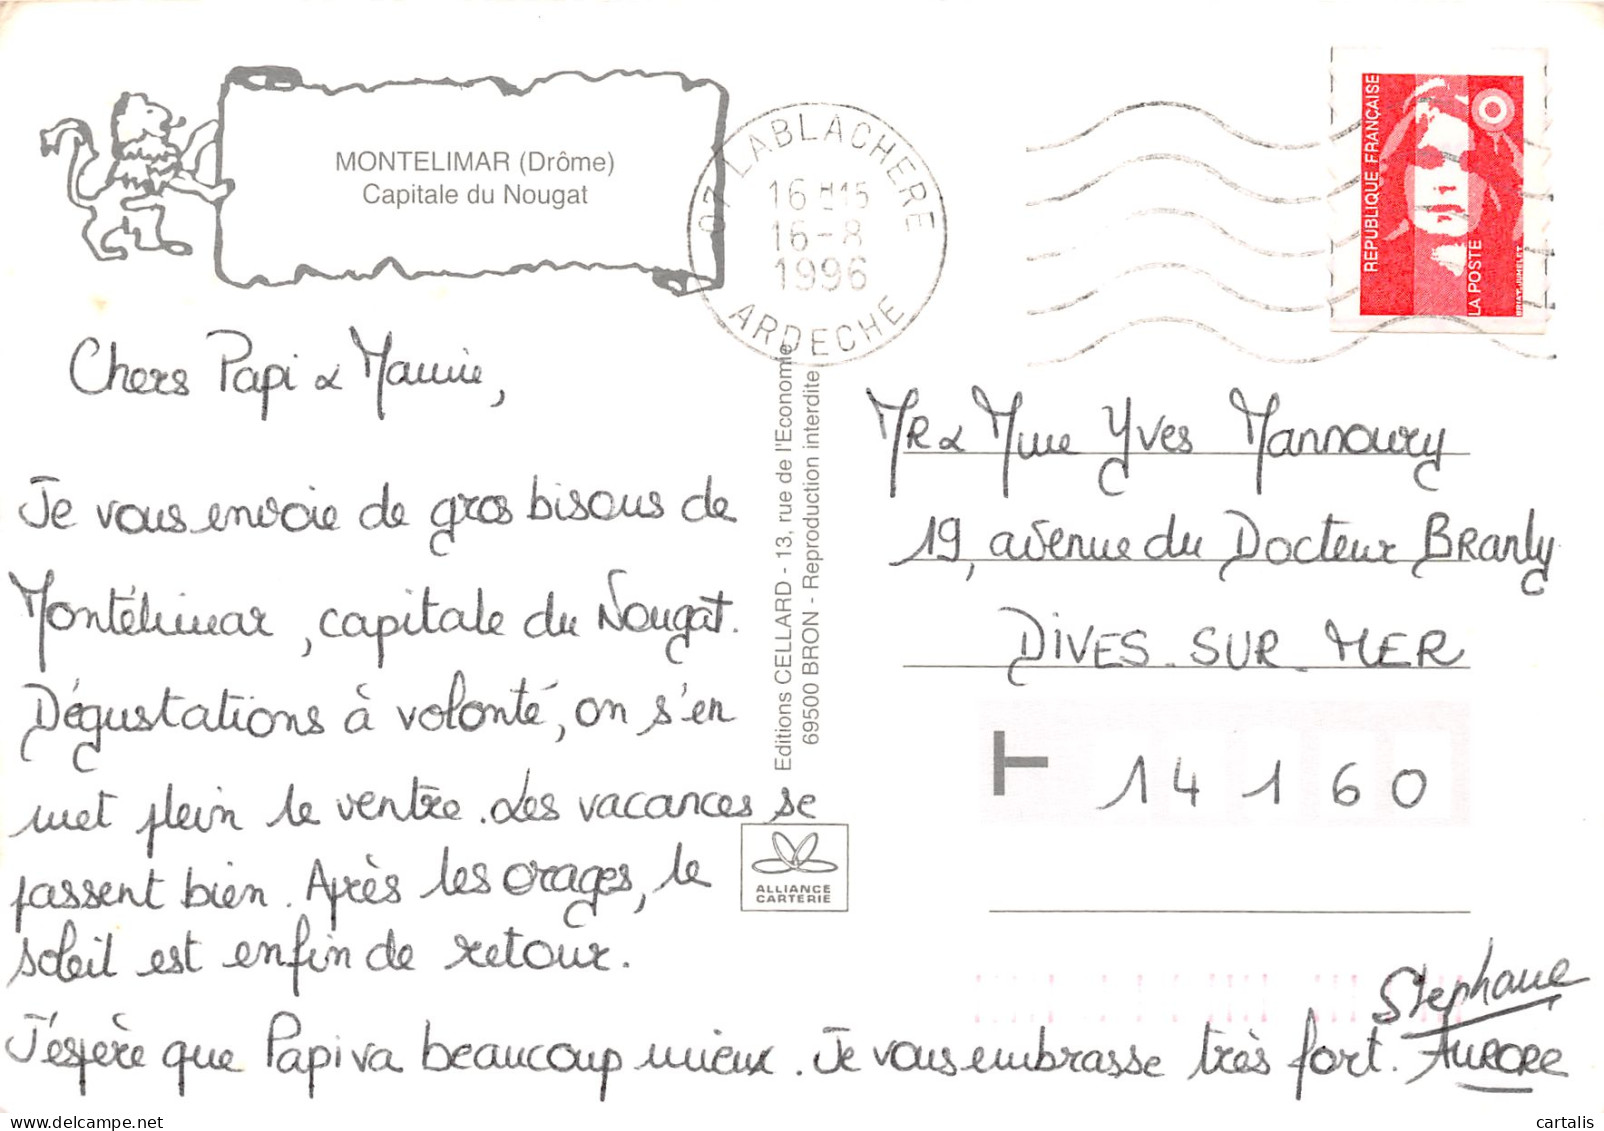 MONTELIMAR (Drôme)
Capitale du Nougat
07 LABLACHERE
16 H15
16-8
1996
ARDECHE
REPUBLIQUE FRANÇAISE
LA POSTE
BRIAT-JUMELET
Chers Papi & Mamie,
Je vous envoie de gros bisous de
Montélimar, capitale du Nougat.
Dégustations à volonté, on s'en
met plein le ventre. Les vacances se
passent bien. Après les orages, le
soleil est enfin de retour.
J'espère que Papi va beaucoup mieux. Je vous embrasse très fort.
Stephane
AURORE
Editions CELLARD - 13, rue de l'Economie
69500 BRON - Reproduction interdite
ALLIANCE
CARTERIE
MR & Mme Yves Mannoury
19, avenue du Docteur BRANly
DIVES-SUR-MER
14160
cartalis